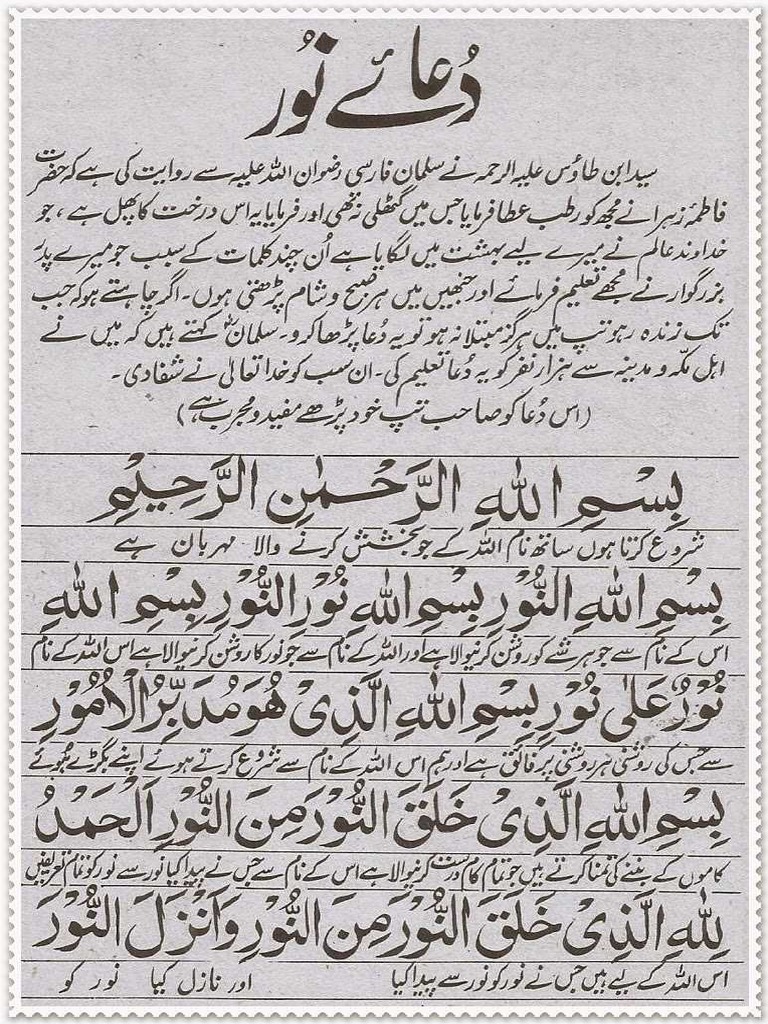 دُعائے نُور
سید ابن طاؤس علیہ الرحمہ نے سلمان فارسی رضوان اللہ علیہ سے روایت کی ہے کہ حضرت
فاطمہ زہرا نے مجھ کو رطب عطا فرمایا جس میں گٹھلی نہ تھی اور فرمایا یہ اس درخت کا پھل ہے، جو
خداوند عالم نے میرے لیے بہشت میں لگایا ہے اُن چند کلمات کے سبب جو میرے پدر
بزرگوار نے مجھے تعلیم فرمائے اور جنھیں میں ہر صبح و شام پڑھتی ہوں۔ اگر چاہتے ہو کہ جب
تک زندہ رہو تپ میں ہرگز مبتلا نہ ہو تو یہ دُعا پڑھا کرو۔ سلمانؓ کہتے ہیں کہ میں نے
اہل مکہ و مدینہ سے ہزار نفر کو یہ دُعا تعلیم کی۔ ان سب کو خدا تعالیٰ نے شفا دی۔
(اس دُعا کو صاحب تپ خود پڑھے مفید و مجرب ہے)
بِسْمِ اللهِ الرَّحْمٰنِ الرَّحِيْمِ
شروع کرتا ہوں ساتھ نام اللہ کے جو بخشش کرنے والا مہربان ہے
بِسْمِ اللهِ النُّوْرِ بِسْمِ اللهِ نُوْرِ النُّوْرِ بِسْمِ اللهِ
اس کے نام سے جو ہر شے کو روشن کرنیوالا ہے اور اللہ کے نام سے جو نور کا روشن کرنیوالا ہے اس اللہ کے نام
نُوْرٌ عَلٰى نُوْرٍ بِسْمِ اللهِ الَّذِىْ هُوَ مُدَبِّرُ الْاُمُوْرِ
سے جس کی روشنی ہر روشنی پر فائق ہے اور ہم اس اللہ کے نام سے شروع کرتے ہوئے اپنے بگڑے ہوئے
بِسْمِ اللهِ الَّذِىْ خَلَقَ النُّوْرَ مِنَ النُّوْرِ اَلْحَمْدُ
کاموں کے بننے کی تمنا کرتے ہیں جو تمام کام درست کرنیوالا ہے اس کے نام سے جس نے پیدا کیا نور سے نور کو تمام تعریفیں
لِلّٰهِ الَّذِىْ خَلَقَ النُّوْرَ مِنَ النُّوْرِ وَاَنْزَلَ النُّوْرَ
اس اللہ کے لیے ہیں جس نے نور کو نور سے پیدا کیا اور نازل کیا نور کو